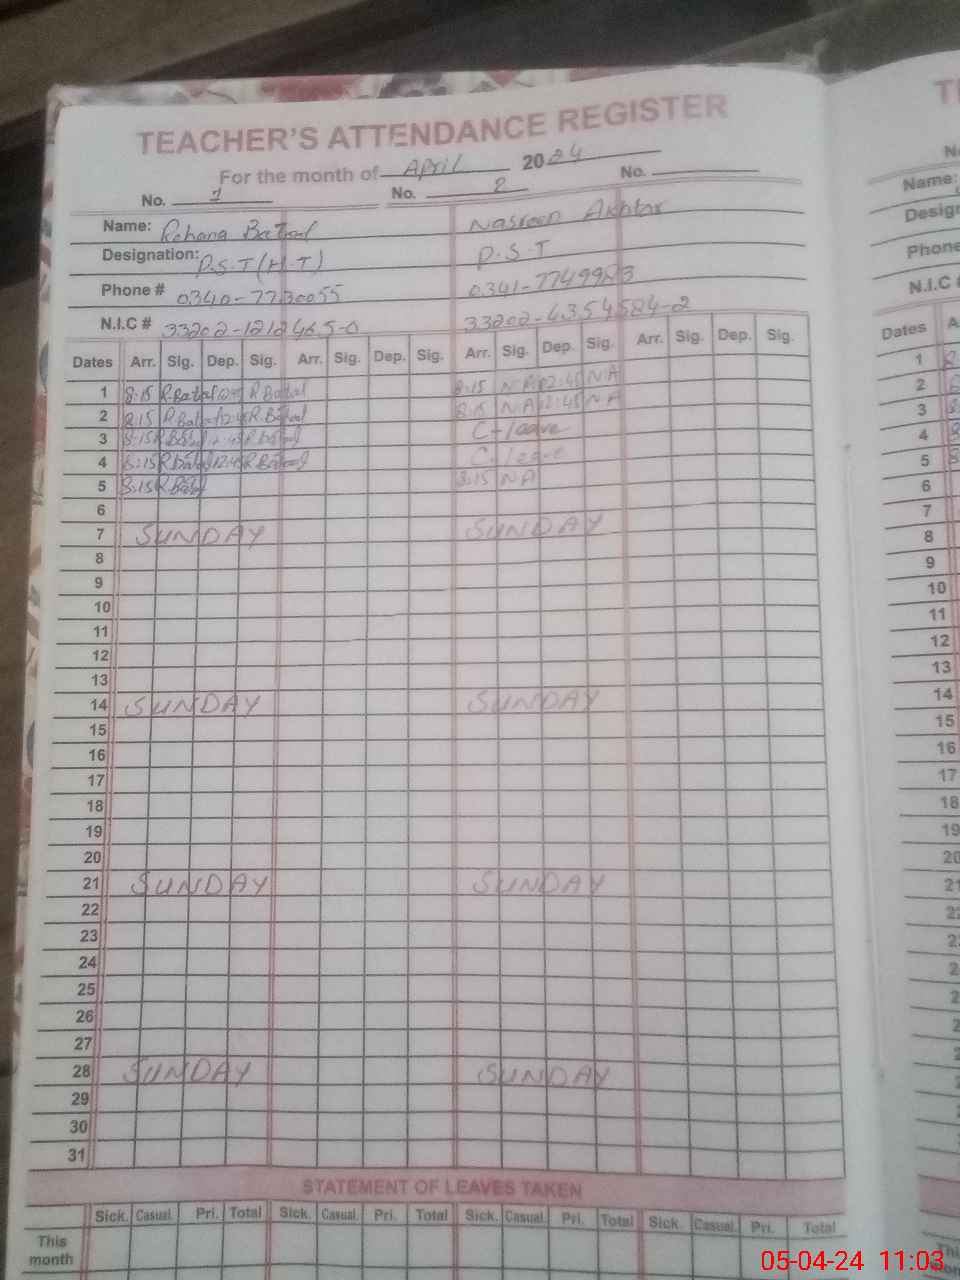 TEACHER'S ATTENDANCE REGISTER
For the month of April 2024
No. 1 No. 2 No.
Name: Rehana Batool Nasreen Akhtar
Designation: P.S.T (H.T) P.S.T
Phone # 0340-7730055 0341-7749983
N.I.C # 33202-1212465-0 33202-4354584-2
Dates Arr. Sig. Dep. Sig. Arr. Sig. Dep. Sig. Arr. Sig. Dep. Sig. Arr. Sig. Dep. Sig.
1 8:15 R.Batool R Batool 8:15 N A 12:45 N A
2 8:15 R Batool 12:45 R.Batool 8:15 N.A 12:45 N A
3 8:15 R Batool 12:45 R Batool C-leave
4 8:15 R Batool 12:45 R Batool C-leave
5 8:15 R Batool 8:15 N A
6
7 SUNDAY SUNDAY
8
9
10
11
12
13
14 SUNDAY SUNDAY
15
16
17
18
19
20
21 SUNDAY SUNDAY
22
23
24
25
26
27
28 SUNDAY SUNDAY
29
30
31
STATEMENT OF LEAVES TAKEN
Sick. Casual. Pri. Total Sick. Casual. Pri. Total Sick. Casual. Pri. Total Sick. Casual. Pri. Total
This
month
Name:
Phone
N.I.C
Dates
1
2
3
4
5
6
7
8
9
10
11
12
13
14
15
16
17
18
19
20
21
05-04-24 11:03